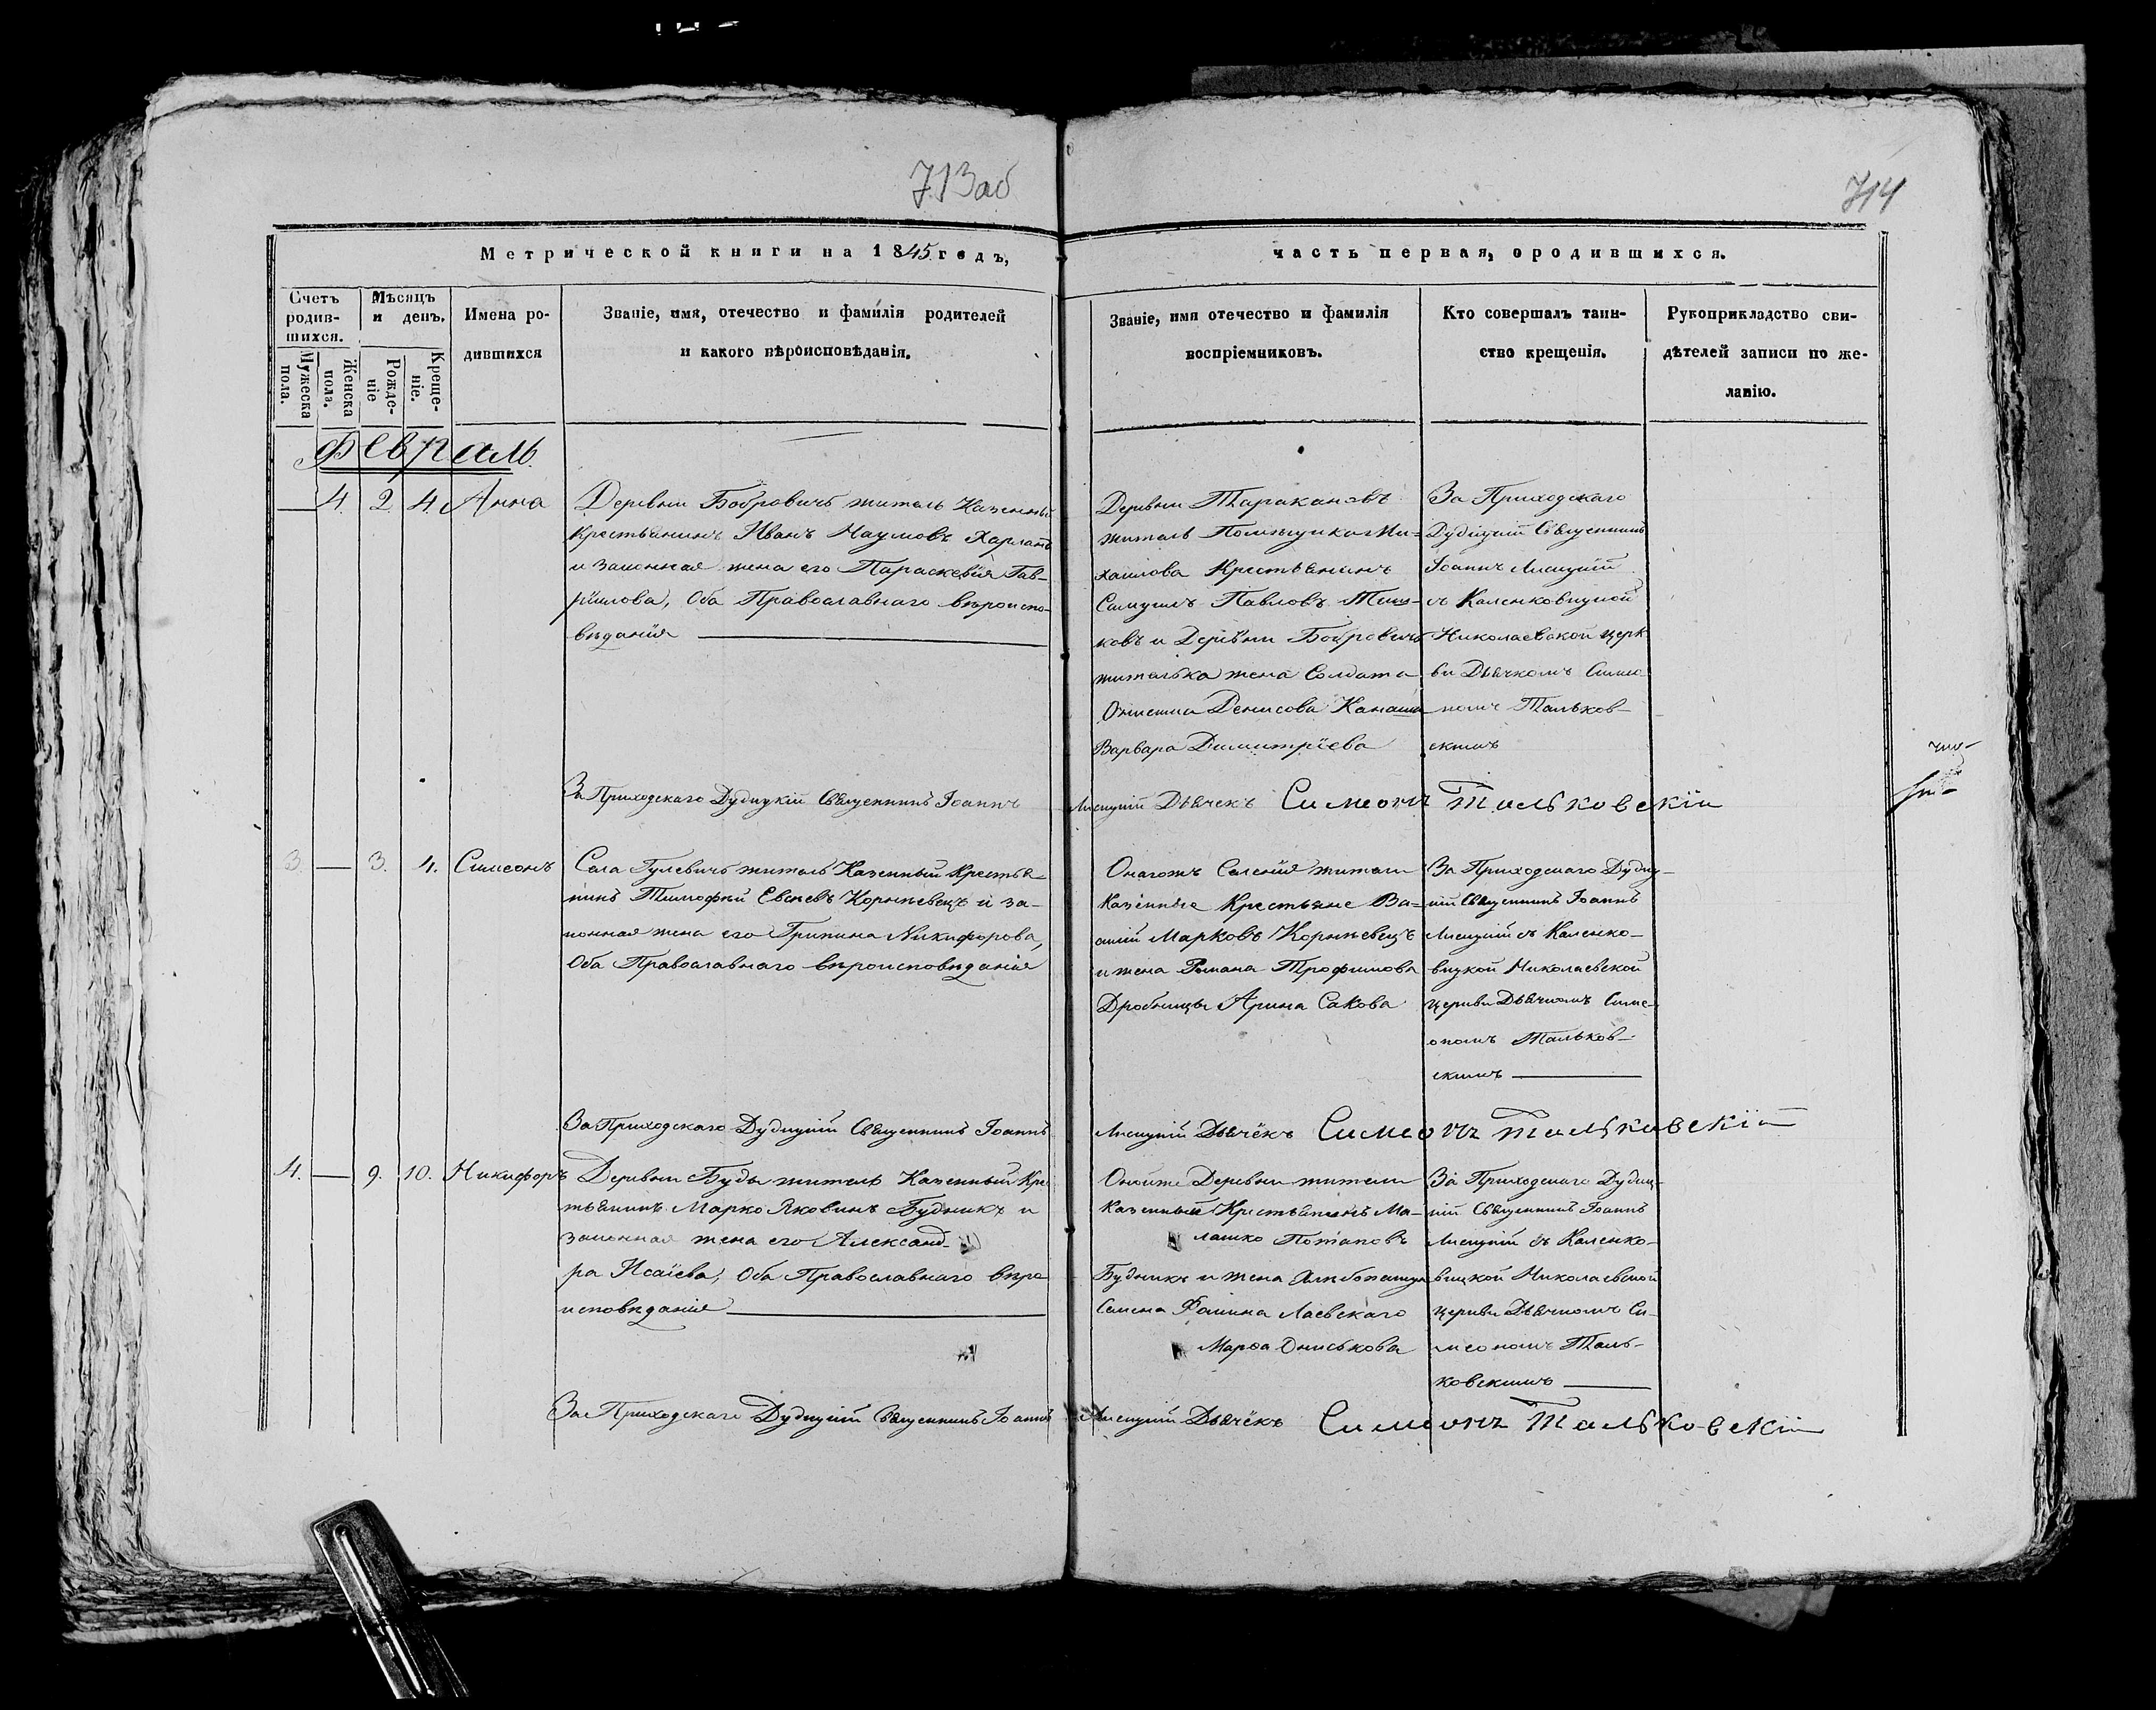 713 аб
714
Метрической книги на 1845 годъ,
часть первая, о родившихся.
Счетъ родившихся.
Мужеска пола.
Женска пола.
Мѣсяцъ и день.
Рожденіе
Крещеніе.
Имена родившихся
Званіе, имя, отечество и фамилія родителей
и какого вѣроисповѣданія.
Званіе, имя отечество и фамилія
воспріемниковъ.
Кто совершалъ таин-
ство крещенія.
Рукоприкладство сви-
дѣтелей записи по же-
ланію.
Февраль
— 4. 2 4. Анна
Деревни Бобровичь житель Казенный
Крестьянинъ Иванъ Наумовъ Харланъ
и законная жена его Параскевія Гав-
ріилова, Оба Православнаго вѣроиспо-
вѣданія
Деревни Таракановъ
житель Помѣщика Ми-
хаилова Крестьянинъ
Самуилъ Павловъ
ковъ и Деревни Бобровичь
жителька жена Солдата
Денисова Канаша
Варвара Димитріева
За Приходскаго
Дудицкій Священникъ
Іоаннъ Лисицкій
съ Каленковицкой
Николаевской церк
ви Дьячкомъ Симео
номъ Тальков-
скимъ
За Приходскаго Дудицкій Священникъ Іоаннъ Лисицкій Дьячекъ Симеонъ Тальковскій
3 — 3. 4. Симеонъ
Села Гулевичь житель Казенный Крестья-
нинъ Тимофей Евсѣевъ Корнѣевецъ и за-
конная жена его Грипина Никифорова,
Оба Православнаго вѣроисповѣданія
Онагожъ Селенія жители
Казенные Крестьяне Ва-
силій Марковъ Корнѣевецъ
и жена Романа Трофимова
Дробницы Арина Сакова
За Приходскаго Дудиц-
кій Священникъ Іоаннъ
Лисицкій съ Каленко-
вицкой Николаевской
церкви Дьячкомъ Симе-
ономъ Тальков-
скимъ
За Приходскаго Дудицкій Священникъ Іоаннъ Лисицкій Дьячёкъ Симеонъ Тальковскій
4. — 9. 10. Никифоръ
Деревни Буды житель Казенный Кре
стьянинъ Марко Яковинъ Будникъ и
законная жена его Александ-
ра Исаіева, Оба Православнаго вѣро
исповѣданія
Онойже Деревни жители
Казенный Крестьянинъ Ма-
лашко Потаповъ
Будникъ и жена
Семена Фомина Лаевскаго
Марѳа Ониськова
За Приходскаго Дудиц-
кій Священникъ Іоаннъ
Лисицкій съ Каленко-
вицкой Николаевской
церкви Дьячкомъ Си-
меономъ Таль-
ковскимъ
За Приходскаго Дудицкій Священникъ Іоаннъ Лисицкій Дьячёкъ Симеонъ Тальковскій